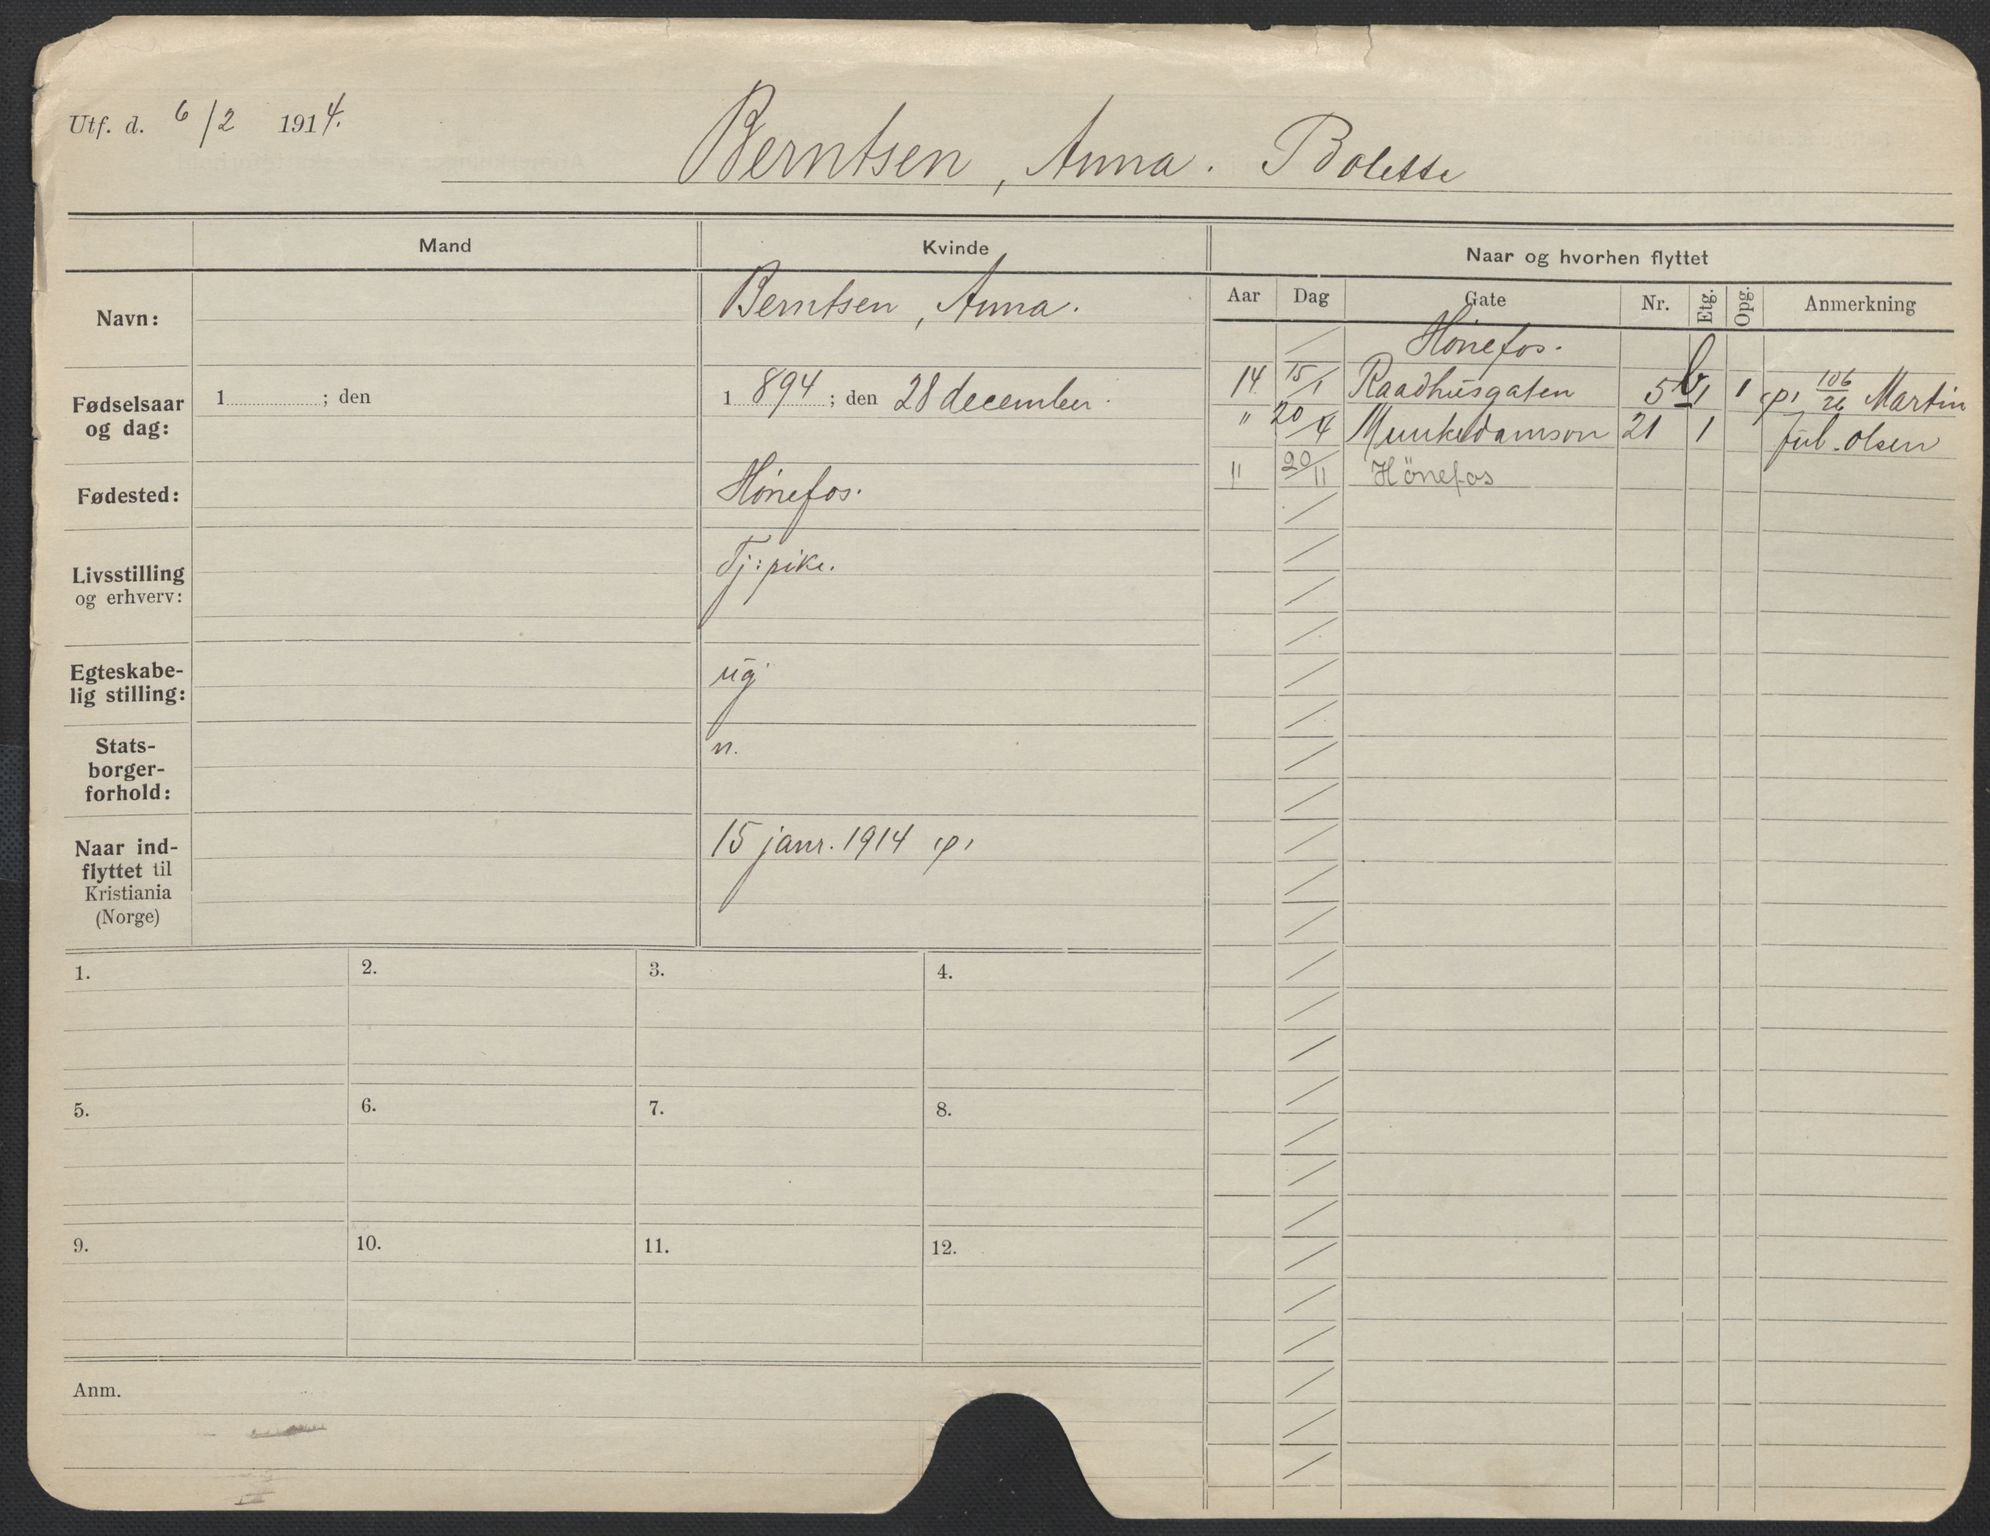 Utf. d. 6/2 1914.
Berntsen, Anna. Bolette
Mand
Kvinde
Naar og hvorhen flyttet
Aar Dag Gate Nr. Etg. Opg. Anmerkning
Navn:
Berntsen, Anna.
Fødselsaar og dag:
1 ; den
1 894 ; den 28 december.
Fødested:
Hönefos.
Livsstilling og erhverv:
Tj: pike.
Egteskabe-
lig stilling:
ug
Stats-
borger-
forhold:
n.
Naar ind-
flyttet til
Kristiania
(Norge)
15 janr. 1914
Hönefos.
14 15/1 Raadhusgaten 5 b 1 1 106/26 Martin
" 20/4 Munkedamsvn 21 1 Jul. Olsen
" 20/11 Hönefos
1. 2. 3. 4.
5. 6. 7. 8.
9. 10. 11. 12.
Anm.